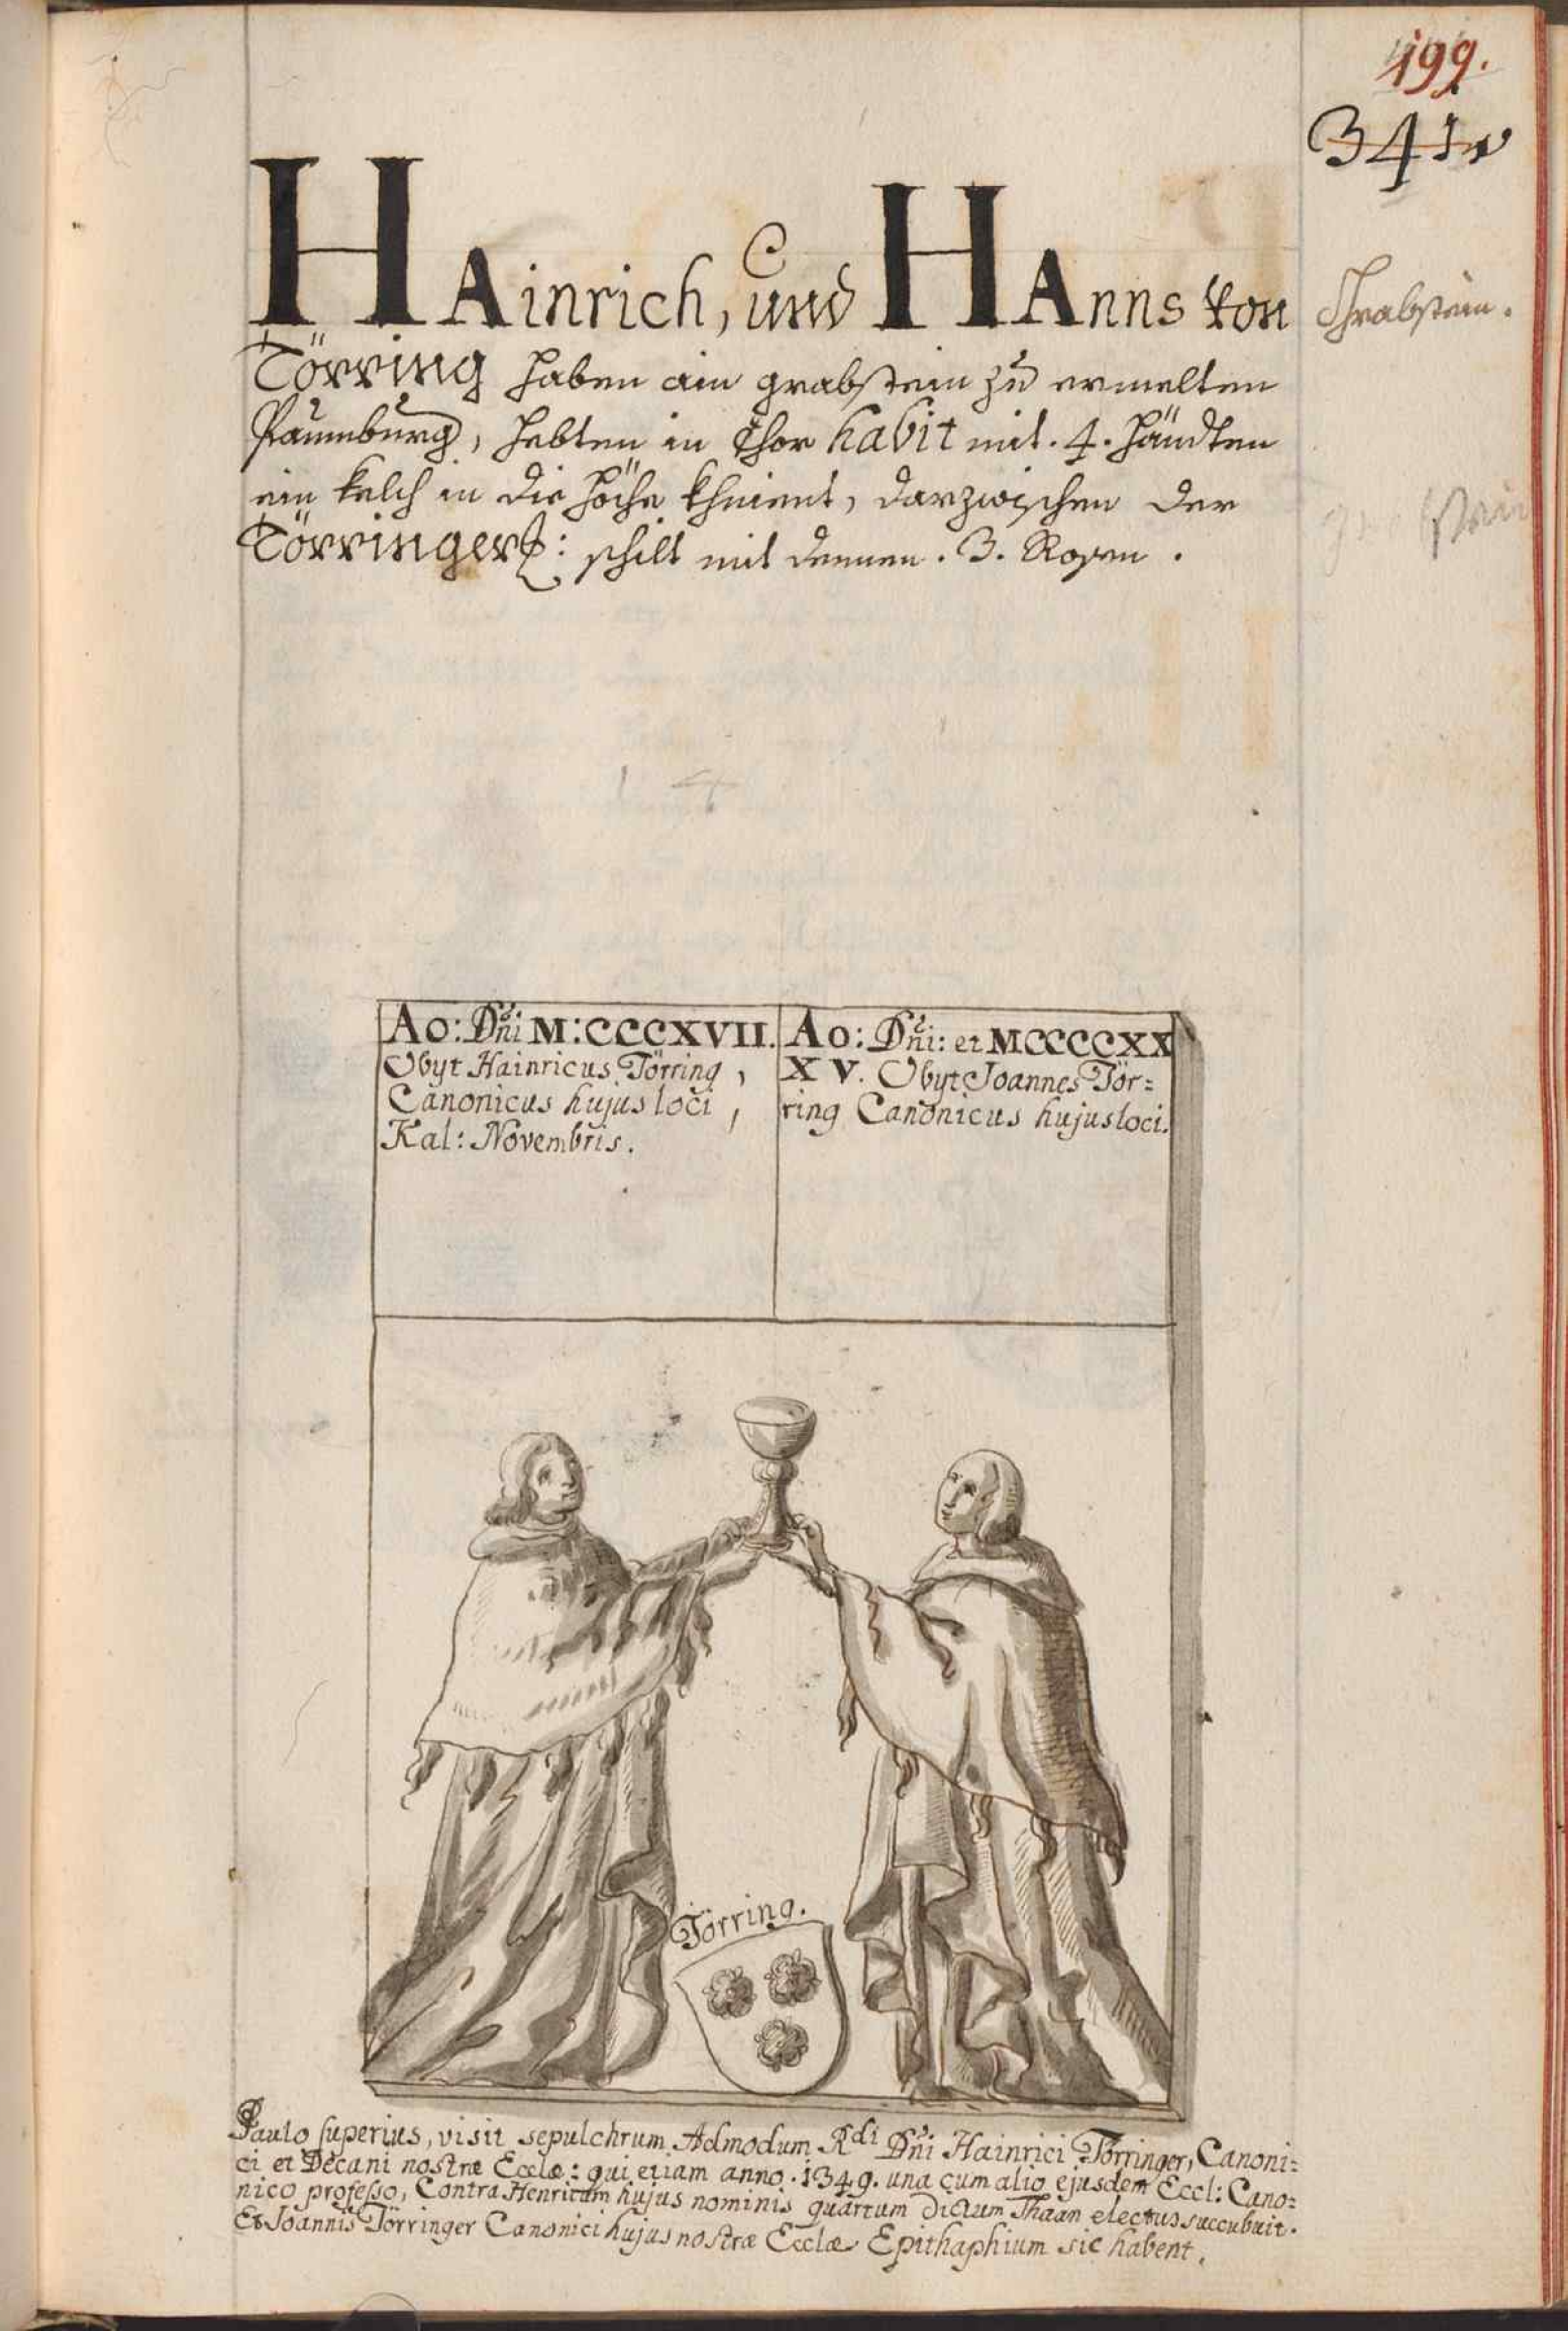 199.
341
HAinrich, und HAnns von
Grabstein.
Törring haben ain grabstein zu ermelten
Paumburg, hebten in Chor habit mit . 4 . händten
ein kelch in die höche khnient, darzwischen der
Törringer: schilt mit dennen . 3 . Rosen .
Ao: Dni M:CCCXVII.
Obyt Hainricus Törring,
Canonicus hujus loci,
Kal: Novembris.
Ao: Dni: et MCCCCXX
XV. Obyt Joannes Tör=
ring Canonicus hujus loci.
Törring.
Paulo superius, visit sepulchrum Admodum Rdi Dni Hainrici Törringer, Canoni=
ci et Decani nostræ Ecclæ: qui etiam anno . 1349. una cum alio ejusdem Eccl: Cano=
nico professo, Contra Henricum hujus nominis quartum dictum Thaan electus succubuit.
Et Joannis Törringer Canonici hujus nostræ Ecclæ Epithaphium sic habent,